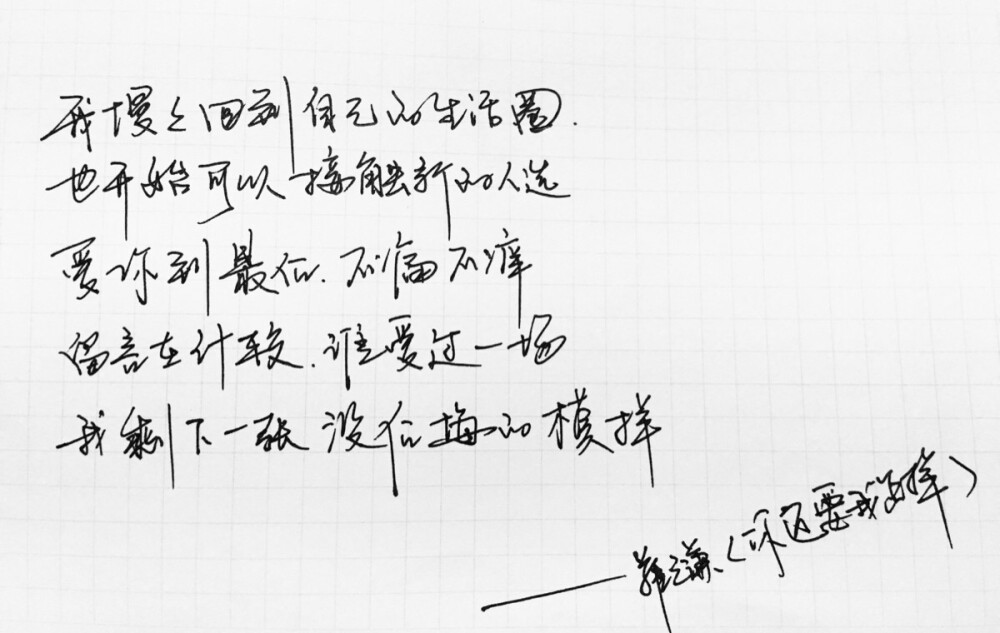 我慢々回到自己的生活圈.
也开始可以接触新的人选
爱你到最后.不痛不痒
留言在计较.谁爱过一场
我剩下一张没后悔的模样
——薛之谦《你还要我怎样》